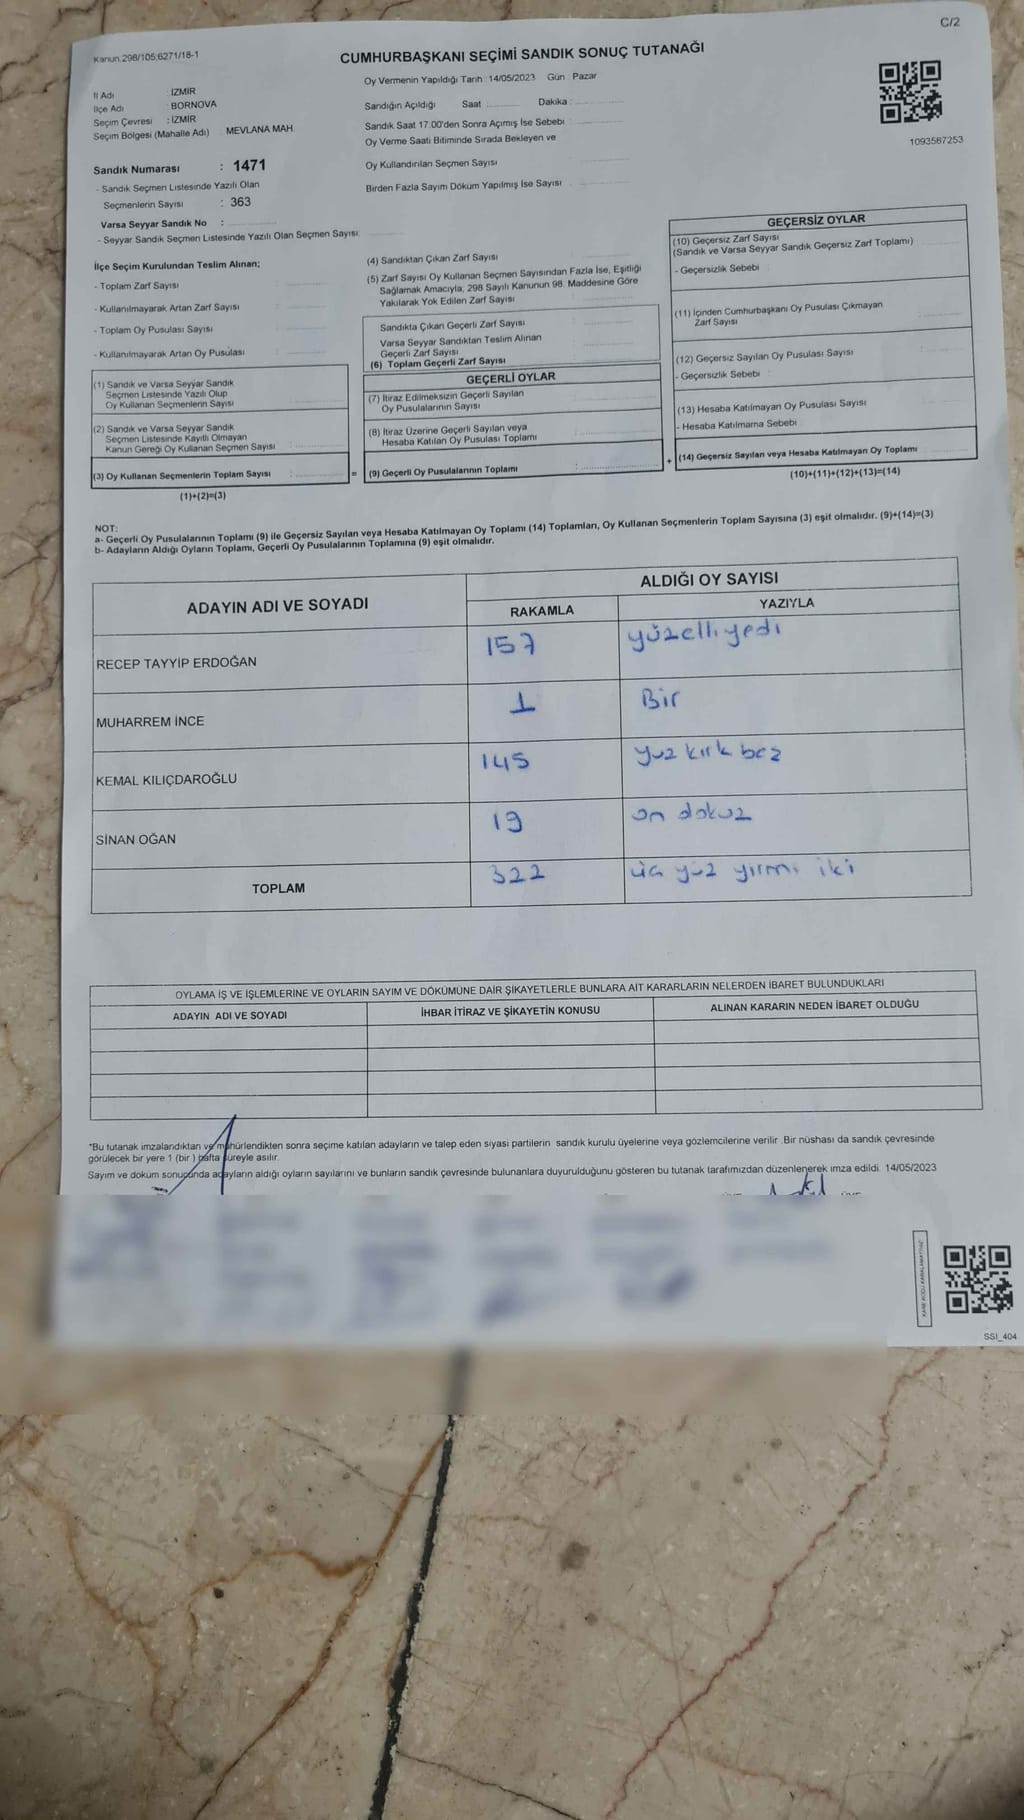 C/2
Kanun.298/105;6271/18-1
CUMHURBAŞKANI SEÇİMİ SANDIK SONUÇ TUTANAĞI
Oy Vermenin Yapıldığı Tarih : 14/05/2023 Gün : Pazar
İl Adı : İZMİR
İlçe Adı : BORNOVA
Seçim Çevresi : İZMİR
Seçim Bölgesi (Mahalle Adı) : MEVLANA MAH.
Sandığın Açıldığı Saat : Dakika :
Sandık Saat 17.00'den Sonra Açımış İse Sebebi :
Oy Verme Saati Bitiminde Sırada Bekleyen ve
Oy Kullandırılan Seçmen Sayısı
Birden Fazla Sayım Döküm Yapılmış İse Sayısı :
1093587253
Sandık Numarası : 1471
- Sandık Seçmen Listesinde Yazılı Olan
Seçmenlerin Sayısı : 363
Varsa Seyyar Sandık No :
- Seyyar Sandık Seçmen Listesinde Yazılı Olan Seçmen Sayısı:
İlçe Seçim Kurulundan Teslim Alınan;
- Toplam Zarf Sayısı :
- Kullanılmayarak Artan Zarf Sayısı :
- Toplam Oy Pusulası Sayısı :
- Kullanılmayarak Artan Oy Pusulası :
(1) Sandık ve Varsa Seyyar Sandık
Seçmen Listesinde Yazılı Olup
Oy Kullanan Seçmenlerin Sayısı :
(2) Sandık ve Varsa Seyyar Sandık
Seçmen Listesinde Kayıtlı Olmayan
Kanun Gereği Oy Kullanan Seçmen Sayısı :
(3) Oy Kullanan Seçmenlerin Toplam Sayısı :
(1)+(2)=(3)
(4) Sandıktan Çıkan Zarf Sayısı :
(5) Zarf Sayısı Oy Kullanan Seçmen Sayısından Fazla İse, Eşitliği
Sağlamak Amacıyla; 298 Sayılı Kanunun 98. Maddesine Göre
Yakılarak Yok Edilen Zarf Sayısı :
Sandıkta Çıkan Geçerli Zarf Sayısı :
Varsa Seyyar Sandıktan Teslim Alınan
Geçerli Zarf Sayısı :
(6) Toplam Geçerli Zarf Sayısı
GEÇERLİ OYLAR
(7) İtiraz Edilmeksizin Geçerli Sayılan
Oy Pusulalarının Sayısı :
(8) İtiraz Üzerine Geçerli Sayılan veya
Hesaba Katılan Oy Pusulası Toplamı :
= (9) Geçerli Oy Pusulalarının Toplamı :
GEÇERSİZ OYLAR
(10) Geçersiz Zarf Sayısı
(Sandık ve Varsa Seyyar Sandık Geçersiz Zarf Toplamı)
- Geçersizlik Sebebi :
(11) İçinden Cumhurbaşkanı Oy Pusulası Çıkmayan
Zarf Sayısı
(12) Geçersiz Sayılan Oy Pusulası Sayısı :
- Geçersizlik Sebebi :
(13) Hesaba Katılmayan Oy Pusulası Sayısı :
- Hesaba Katılmama Sebebi :
+ (14) Geçersiz Sayılan veya Hesaba Katılmayan Oy Toplamı :
(10)+(11)+(12)+(13)=(14)
NOT:
a- Geçerli Oy Pusulalarının Toplamı (9) ile Geçersiz Sayılan veya Hesaba Katılmayan Oy Toplamı (14) Toplamları, Oy Kullanan Seçmenlerin Toplam Sayısına (3) eşit olmalıdır. (9)+(14)=(3)
b- Adayların Aldığı Oyların Toplamı, Geçerli Oy Pusulalarının Toplamına (9) eşit olmalıdır.
ADAYIN ADI VE SOYADI
ALDIĞI OY SAYISI
RAKAMLA YAZIYLA
RECEP TAYYİP ERDOĞAN 157 yüzelli yedi
MUHARREM İNCE 1 Bir
KEMAL KILIÇDAROĞLU 145 yuz kırk beş
SİNAN OĞAN 19 on dokuz
TOPLAM 322 üç yüz yirmi iki
OYLAMA İŞ VE İŞLEMLERİNE VE OYLARIN SAYIM VE DÖKÜMÜNE DAİR ŞİKAYETLERLE BUNLARA AİT KARARLARIN NELERDEN İBARET BULUNDUKLARI
ADAYIN ADI VE SOYADI
İHBAR İTİRAZ VE ŞİKAYETİN KONUSU
ALINAN KARARIN NEDEN İBARET OLDUĞU
*Bu tutanak imzalandıktan ve mühürlendikten sonra seçime katılan adayların ve talep eden siyasi partilerin sandık kurulu üyelerine veya gözlemcilerine verilir .Bir nüshası da sandık çevresinde
görülecek bir yere 1 (bir ) hafta süreyle asılır.
Sayım ve döküm sonucunda adayların aldığı oyların sayılarını ve bunların sandık çevresinde bulunanlara duyurulduğunu gösteren bu tutanak tarafımızdan düzenlenerek imza edildi. 14/05/2023
SSI_404